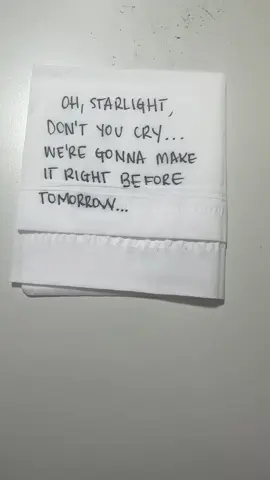 OH, STARLIGHT,
DON'T YOU CRY...
WE'RE GONNA MAKE
IT RIGHT BEFORE
TOMORROW...